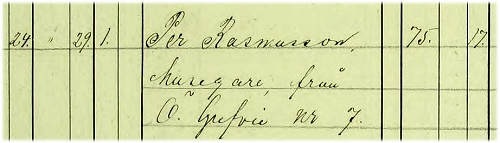 24. " 29. 1. Per Rasmusson, 75. 17.
Husegare, från
Ö. Grefvie nr 7.